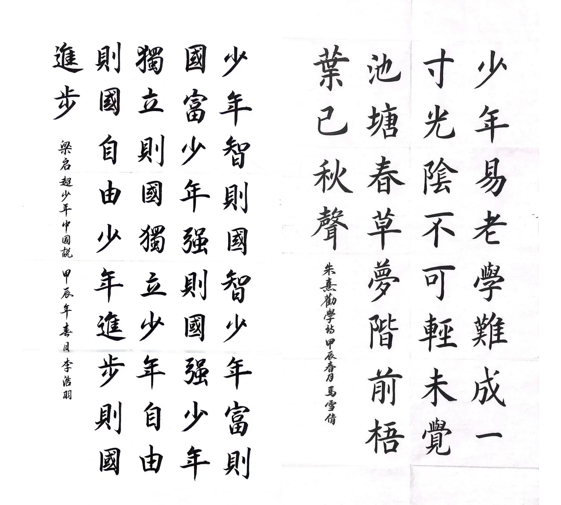 少年易老學難成一
寸光陰不可輕未覺
池塘春草夢階前梧
葉已秋聲
朱熹勸學詩 甲辰春月馬雪倩
少年智則國智少年富則
國富少年强則國强少年
獨立則國獨立少年自由
則國自由少年進步則國
進步
梁启超少年中國說 甲辰年春月李浩羽